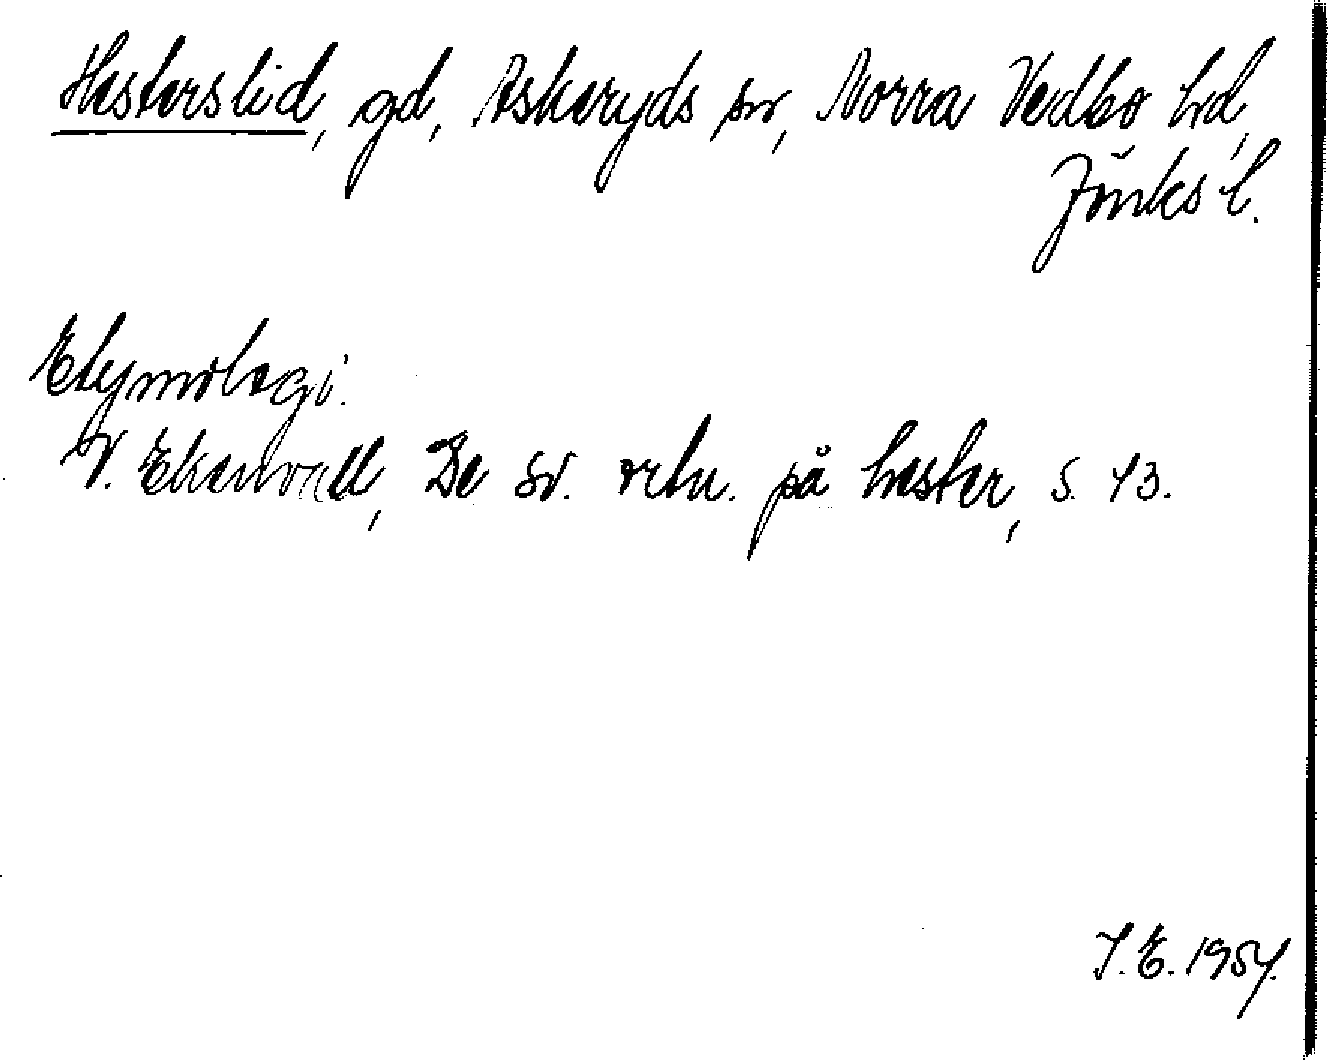 Hesterslid, gd, Askeryds sn, Norra Vedbo hd,
Jönk's l.
Etymologi.
V. Ekenvall, De sv. ortn. på hester, s. 43.
I.E. 1957.